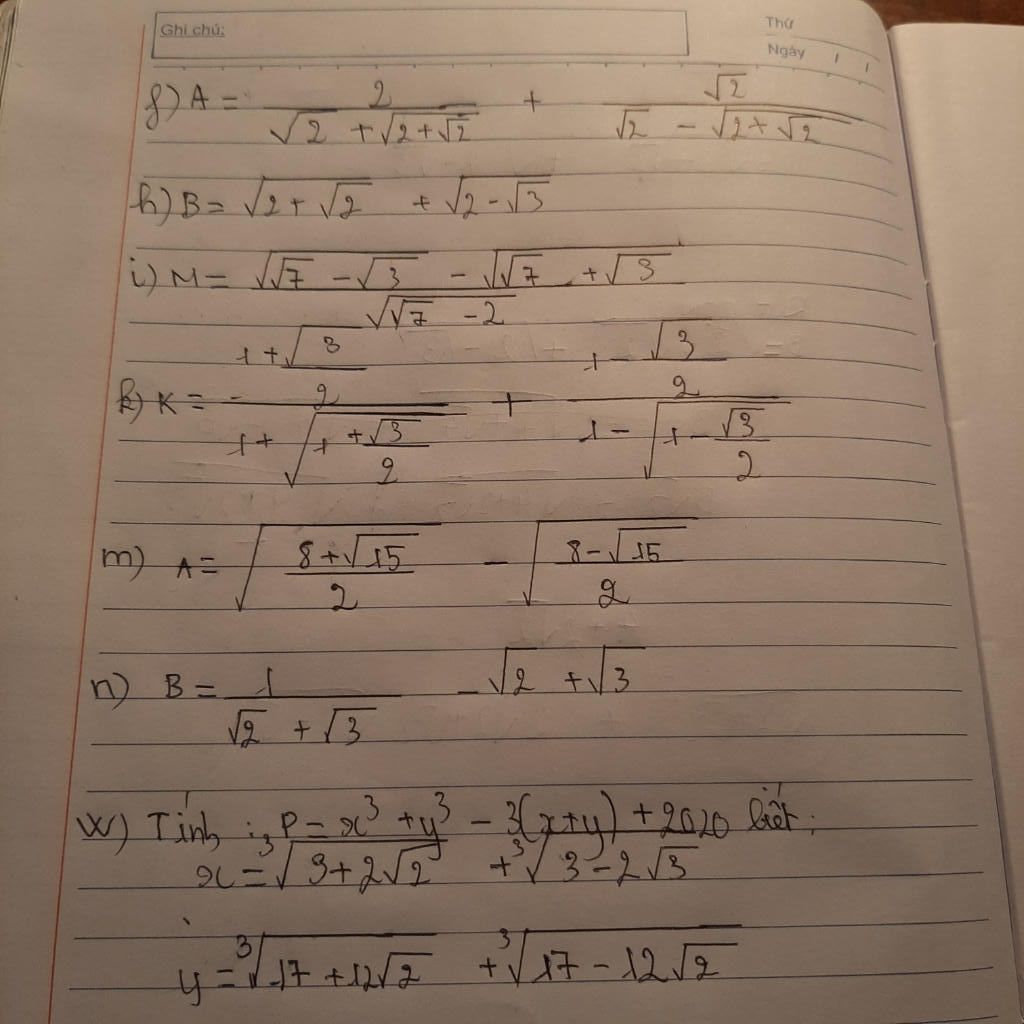 Ghi chú:
Thứ
Ngày / /
f) A = 2/(√2 + √(2+√2)) + √2/(√2 - √(2+√2))
h) B = √(2+√2) + √(2-√3)
i) M = (√(√7 - √3) - √(√7 + √3))/√(√7 - 2)
k) K = (1+√3/2)/(1+√(1+√3/2)) + (1-√3/2)/(1-√(1-√3/2))
m) A = √((8+√15)/2) - √((8-√15)/2)
n) B = 1/(√2 + √3) - √2 + √3
W) Tính : P = x³ + y³ - 3(x+y) + 2020 biết :
x = ³√(3+2√2) + ³√(3-2√3)
y = ³√(17+12√2) + ³√(17-12√2)